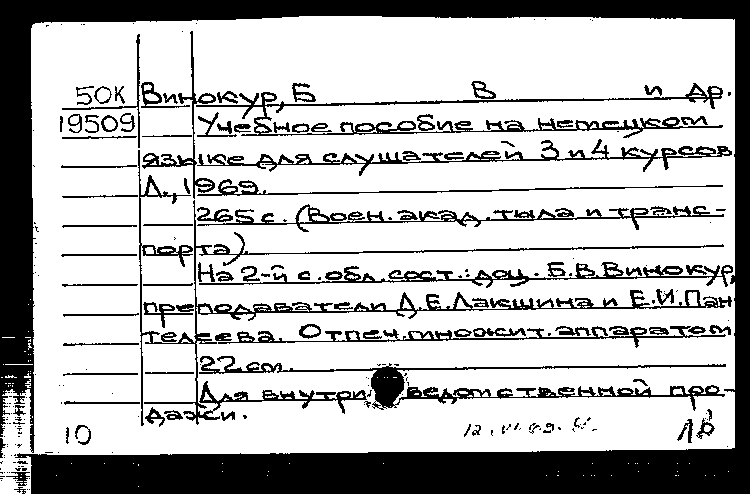 50К Винокур, Б В и др.
19509 Учебное пособие на немецком
языке для слушателей 3 и 4 курсов
Л., 1969.
265 с. (Воен. акад. тыла и транс-
порта)
На 2-й с. обл. сост.: доц. Б.В.Винокур,
преподаватели Д.Е.Лакшина и Е.И.Пан
телеева. Отпеч. множит. аппаратом
22 см.
Для внутриведомственной про-
дажи.
10